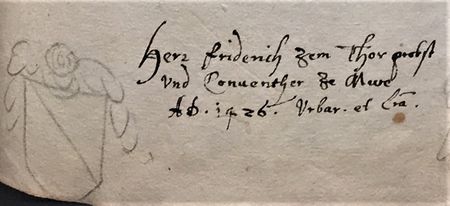 Herr Friderich zem Thor probst
vnd Conventher ze Awe
AD. 1426. Vrbar. et Lra.